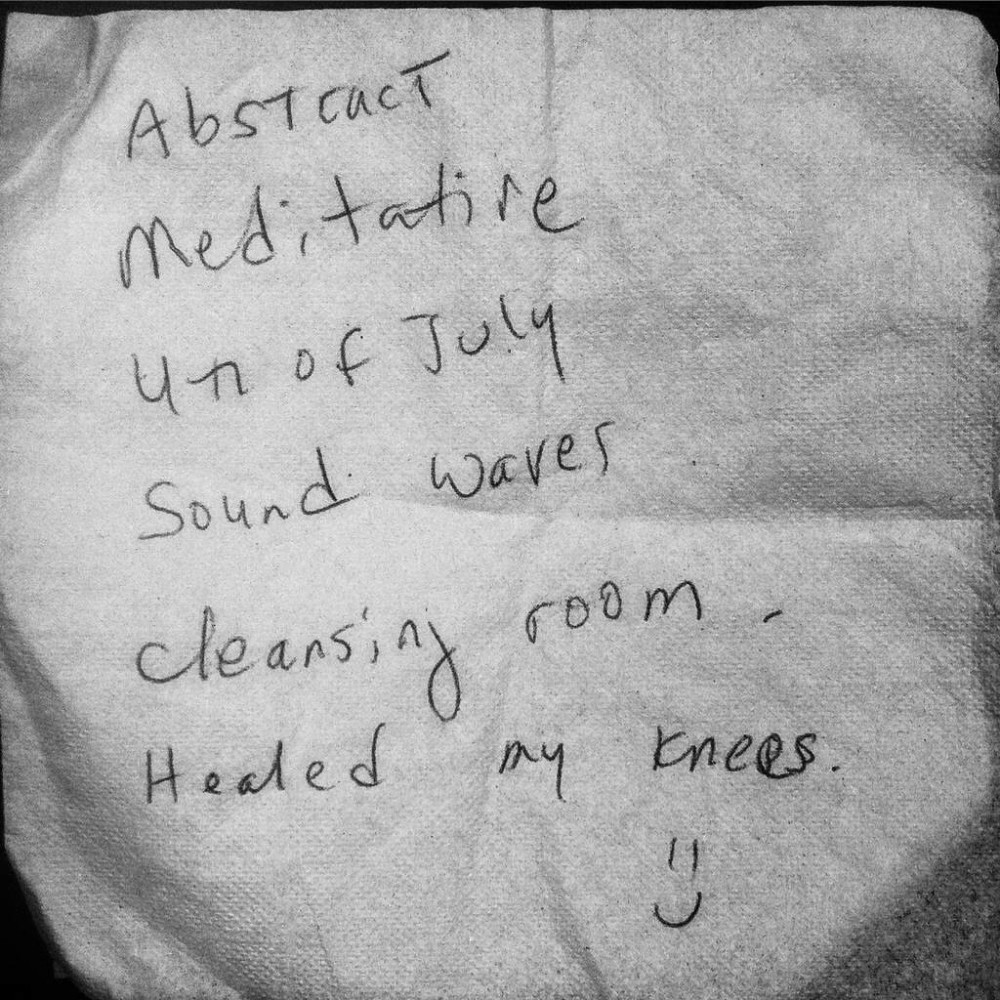 Abstract
Meditative
4th of July
Sound waves
cleansing room -
Healed my knees.